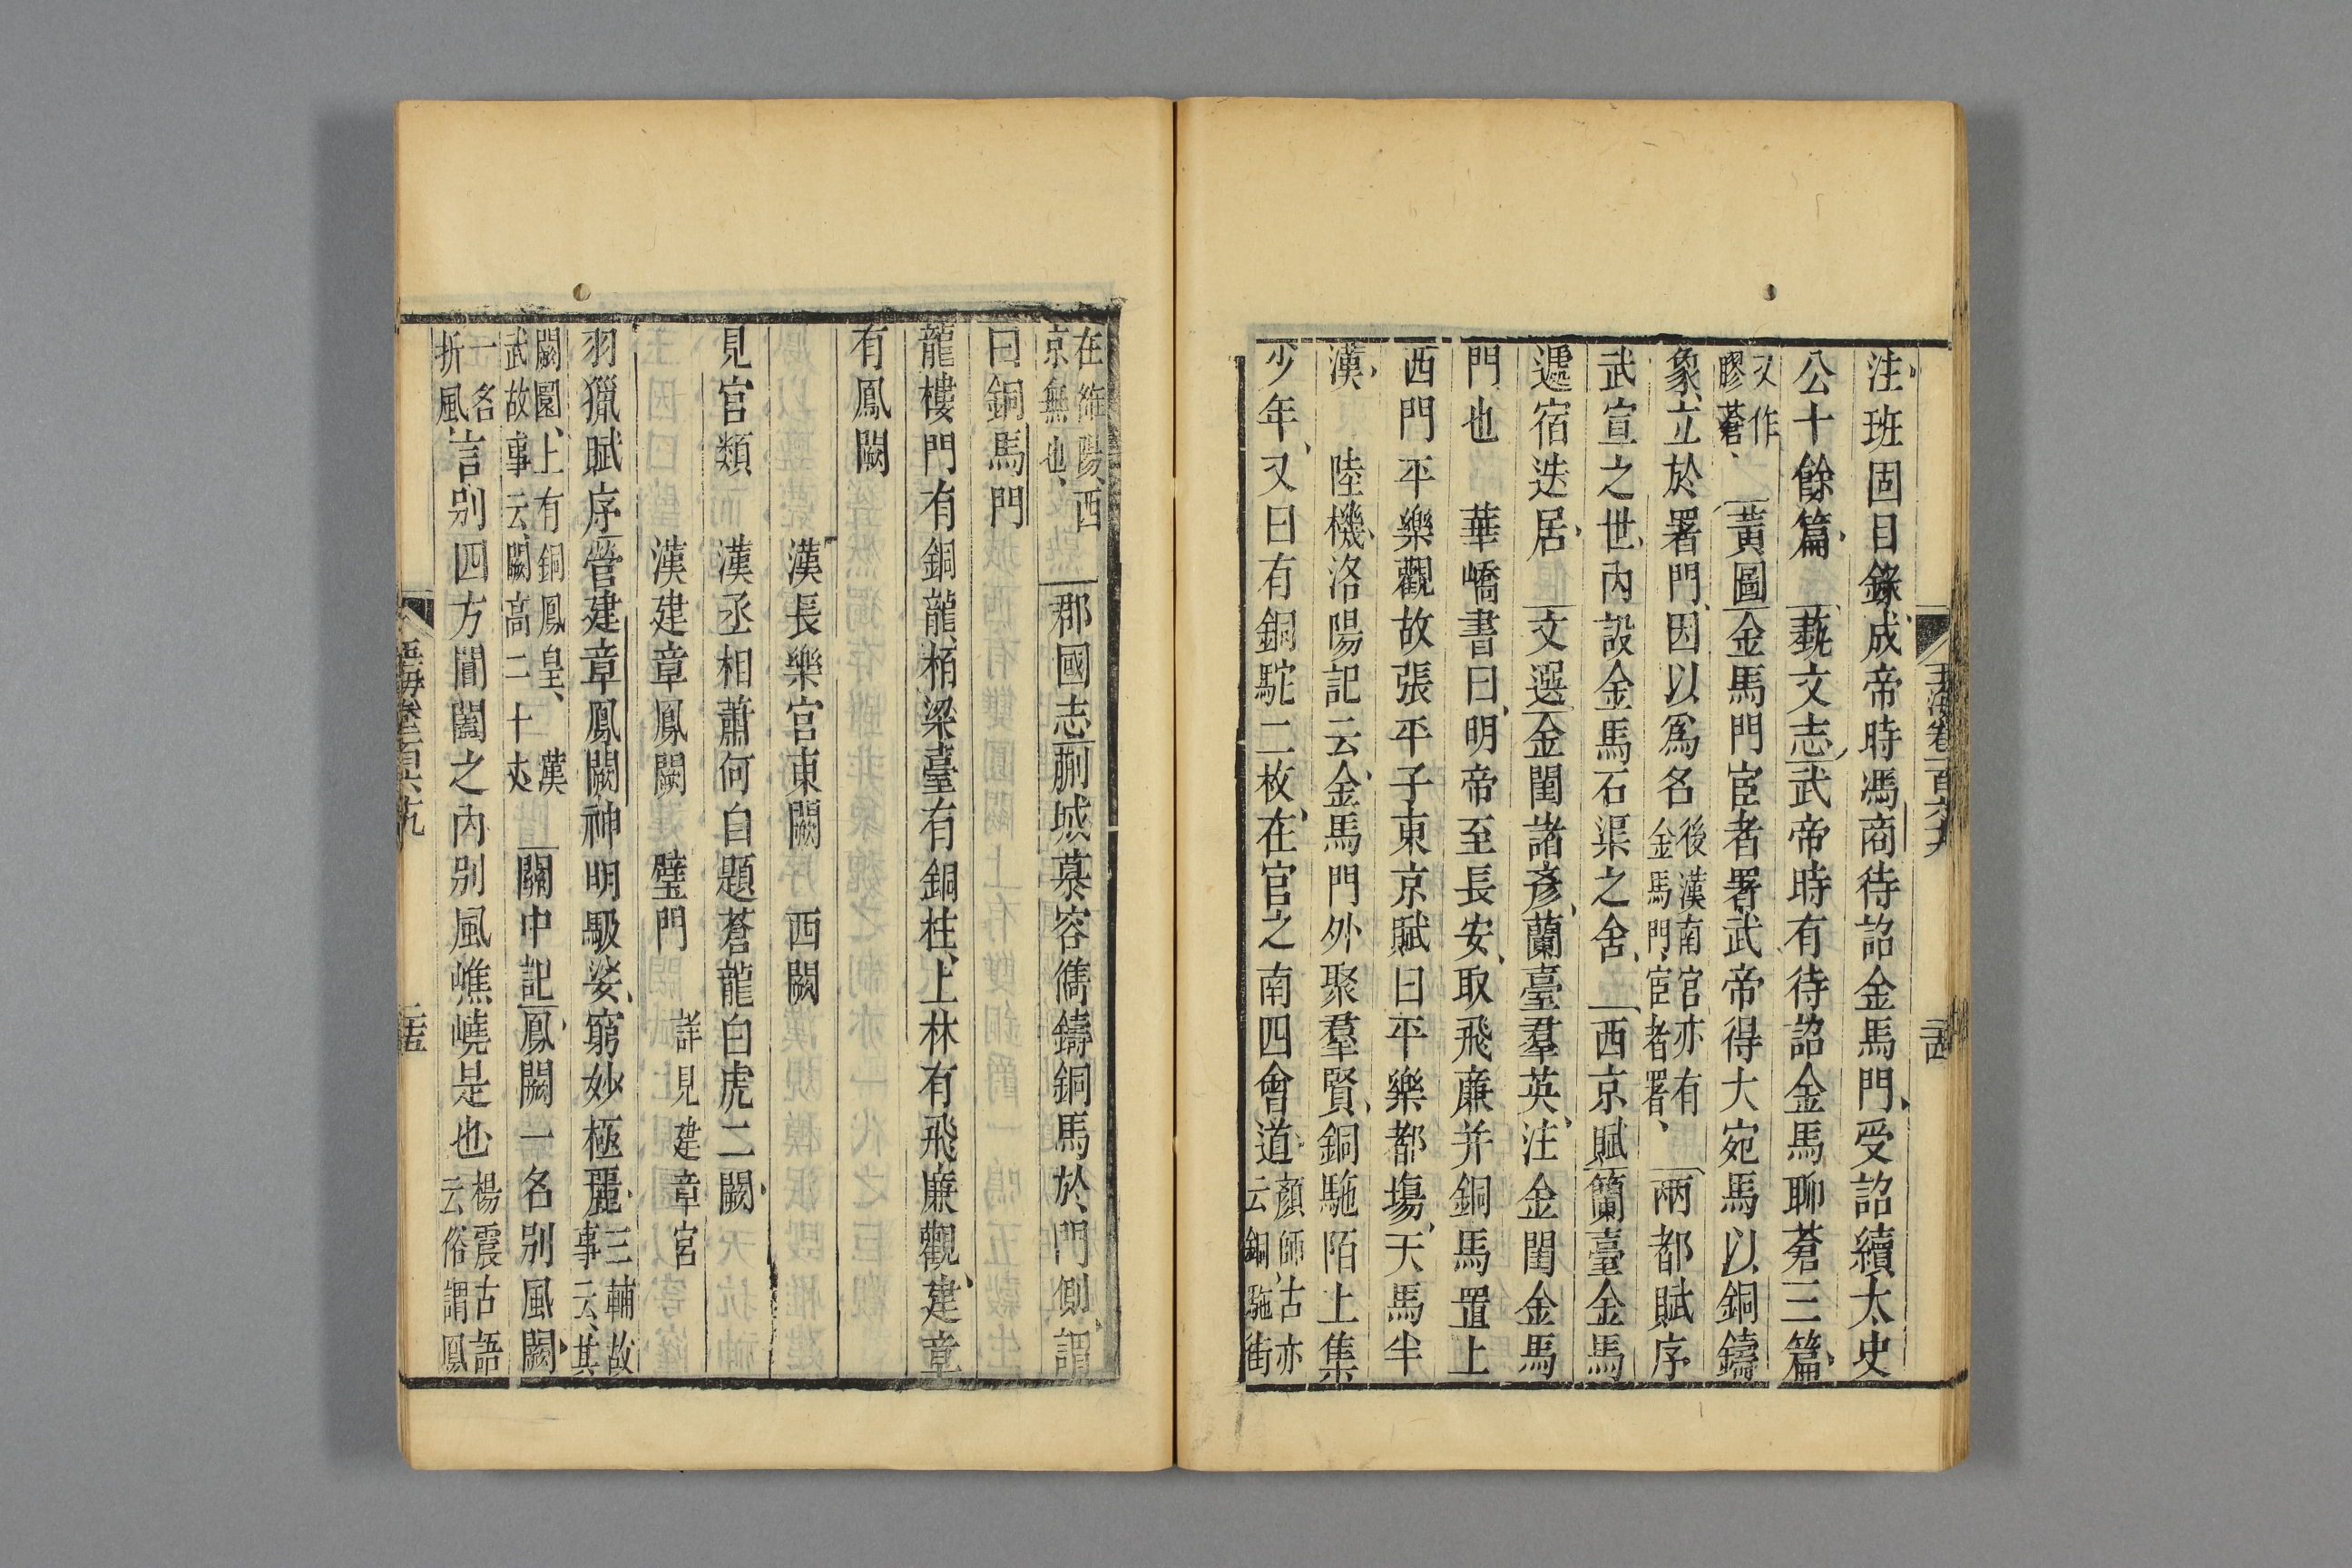 玉海卷一百六十九
注班固目錄成帝時馮商待詔金馬門受詔續太史
公十餘篇 藝文志武帝時有待詔金馬聊蒼三篇
又作膠蒼 黃圖金馬門宦者署武帝得大宛馬以銅鑄
象立於署門因以爲名後漢南宮亦有金馬門宦者署 兩都賦序
武宣之世內設金馬石渠之舍 西京賦蘭臺金馬
遞宿迭居 文選金閨諸彥蘭臺羣英注金閨金馬
門也 華嶠書曰明帝至長安取飛廉并銅馬置上
西門平樂觀故張平子東京賦曰平樂都場天馬半
漢 陸機洛陽記云金馬門外聚羣賢銅駞陌上集
少年又曰有銅駝二枚在官之南四會道顏師古亦云銅駞街
在雒陽西京無也 郡國志薊城慕容儁鑄銅馬於門側謂
曰銅馬門
龍樓門有銅龍栢梁臺有銅柱上林有飛廉觀建章
有鳳闕
漢長樂宮東闕 西闕
見宮類 漢丞相蕭何自題蒼龍白虎二闕
漢建章鳳闕 璧門 詳見建章宮
羽獵賦序營建章鳳闕神明馺娑窮妙極麗三輔故事云其
闕圜上有銅鳳皇 漢武故事云闕高二十丈 關中記鳳闕一名別風闕
一名折風言別四方閶闔之內別風嶕嶢是也楊震古語云俗謂鳳
玉海卷一百六十九